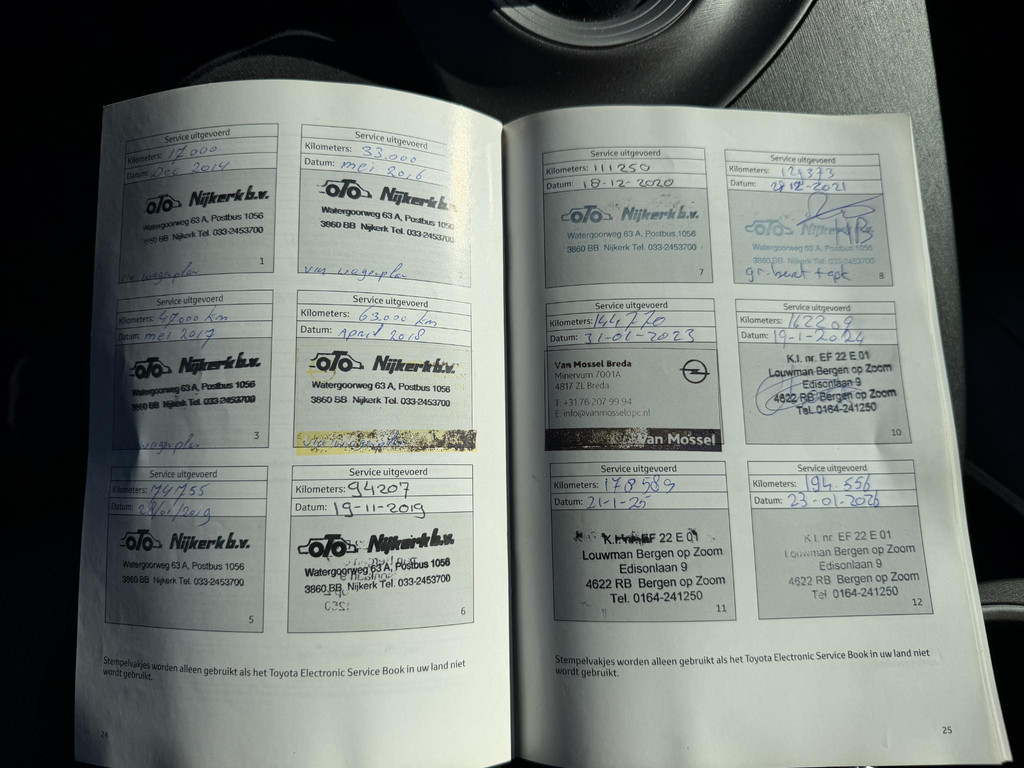 Service uitgevoerd
Kilometers: 17.000
Datum: Dec 2014
OTO Nijkerk b.v.
Watergoorweg 63 A, Postbus 1056
3860 BB Nijkerk Tel. 033-2453700
via wagenplan
1
Service uitgevoerd
Kilometers: 33.000
Datum: mei 2016
OTO Nijkerk b.v.
Watergoorweg 63 A, Postbus 1056
3860 BB Nijkerk Tel. 033-2453700
via wagenplan
Service uitgevoerd
Kilometers: 47.000 km
Datum: mei 2017
OTO Nijkerk b.v.
Watergoorweg 63 A, Postbus 1056
3860 BB Nijkerk Tel. 033-2453700
wagenplan
3
Service uitgevoerd
Kilometers: 63.000 km
Datum: April 2018
OTO Nijkerk b.v.
Watergoorweg 63 A, Postbus 1056
3860 BB Nijkerk Tel. 033-2453700
Service uitgevoerd
Kilometers: 74755
Datum: /01/2019
OTO Nijkerk b.v.
Watergoorweg 63 A, Postbus 1056
3860 BB Nijkerk Tel. 033-2453700
5
Service uitgevoerd
Kilometers: 94207
Datum: 19-11-2019
OTO Nijkerk b.v.
Watergoorweg 63 A, Postbus 1056
3860 BB Nijkerk Tel. 033-2453700
6
Stempelvakjes worden alleen gebruikt als het Toyota Electronic Service Book in uw land niet
wordt gebruikt.
24
Service uitgevoerd
Kilometers: 111250
Datum: 18-12-2020
OTO Nijkerk b.v.
Watergoorweg 63 A, Postbus 1056
3860 BB Nijkerk Tel. 033-2453700
7
Service uitgevoerd
Kilometers: 124373
Datum: 28-12-2021
OTO Nijkerk
Watergoorweg 63 A, Postbus 1056
3860 BB Nijkerk Tel. 033-2453700
gr. beurt + apk
8
Service uitgevoerd
Kilometers: 144770
Datum: 31-01-2023
Van Mossel Breda
Minervum 7001A
4817 ZL Breda
T. +31 76 207 99 94
E. info@vanmosselopc.nl
Van Mossel
Service uitgevoerd
Kilometers: 162209
Datum: 19-1-2024
K.I. nr. EF 22 E 01
Louwman Bergen op Zoom
Edisonlaan 9
4622 RB Bergen op Zoom
Tel. 0164-241250
10
Service uitgevoerd
Kilometers: 178589
Datum: 21-1-25
K.I. nr. EF 22 E 01
Louwman Bergen op Zoom
Edisonlaan 9
4622 RB Bergen op Zoom
Tel. 0164-241250
11
Service uitgevoerd
Kilometers: 194.556
Datum: 23-01-2026
K.I. nr. EF 22 E 01
Louwman Bergen op Zoom
Edisonlaan 9
4622 RB Bergen op Zoom
Tel 0164-241250
12
Stempelvakjes worden alleen gebruikt als het Toyota Electronic Service Book in uw land niet
wordt gebruikt.
25